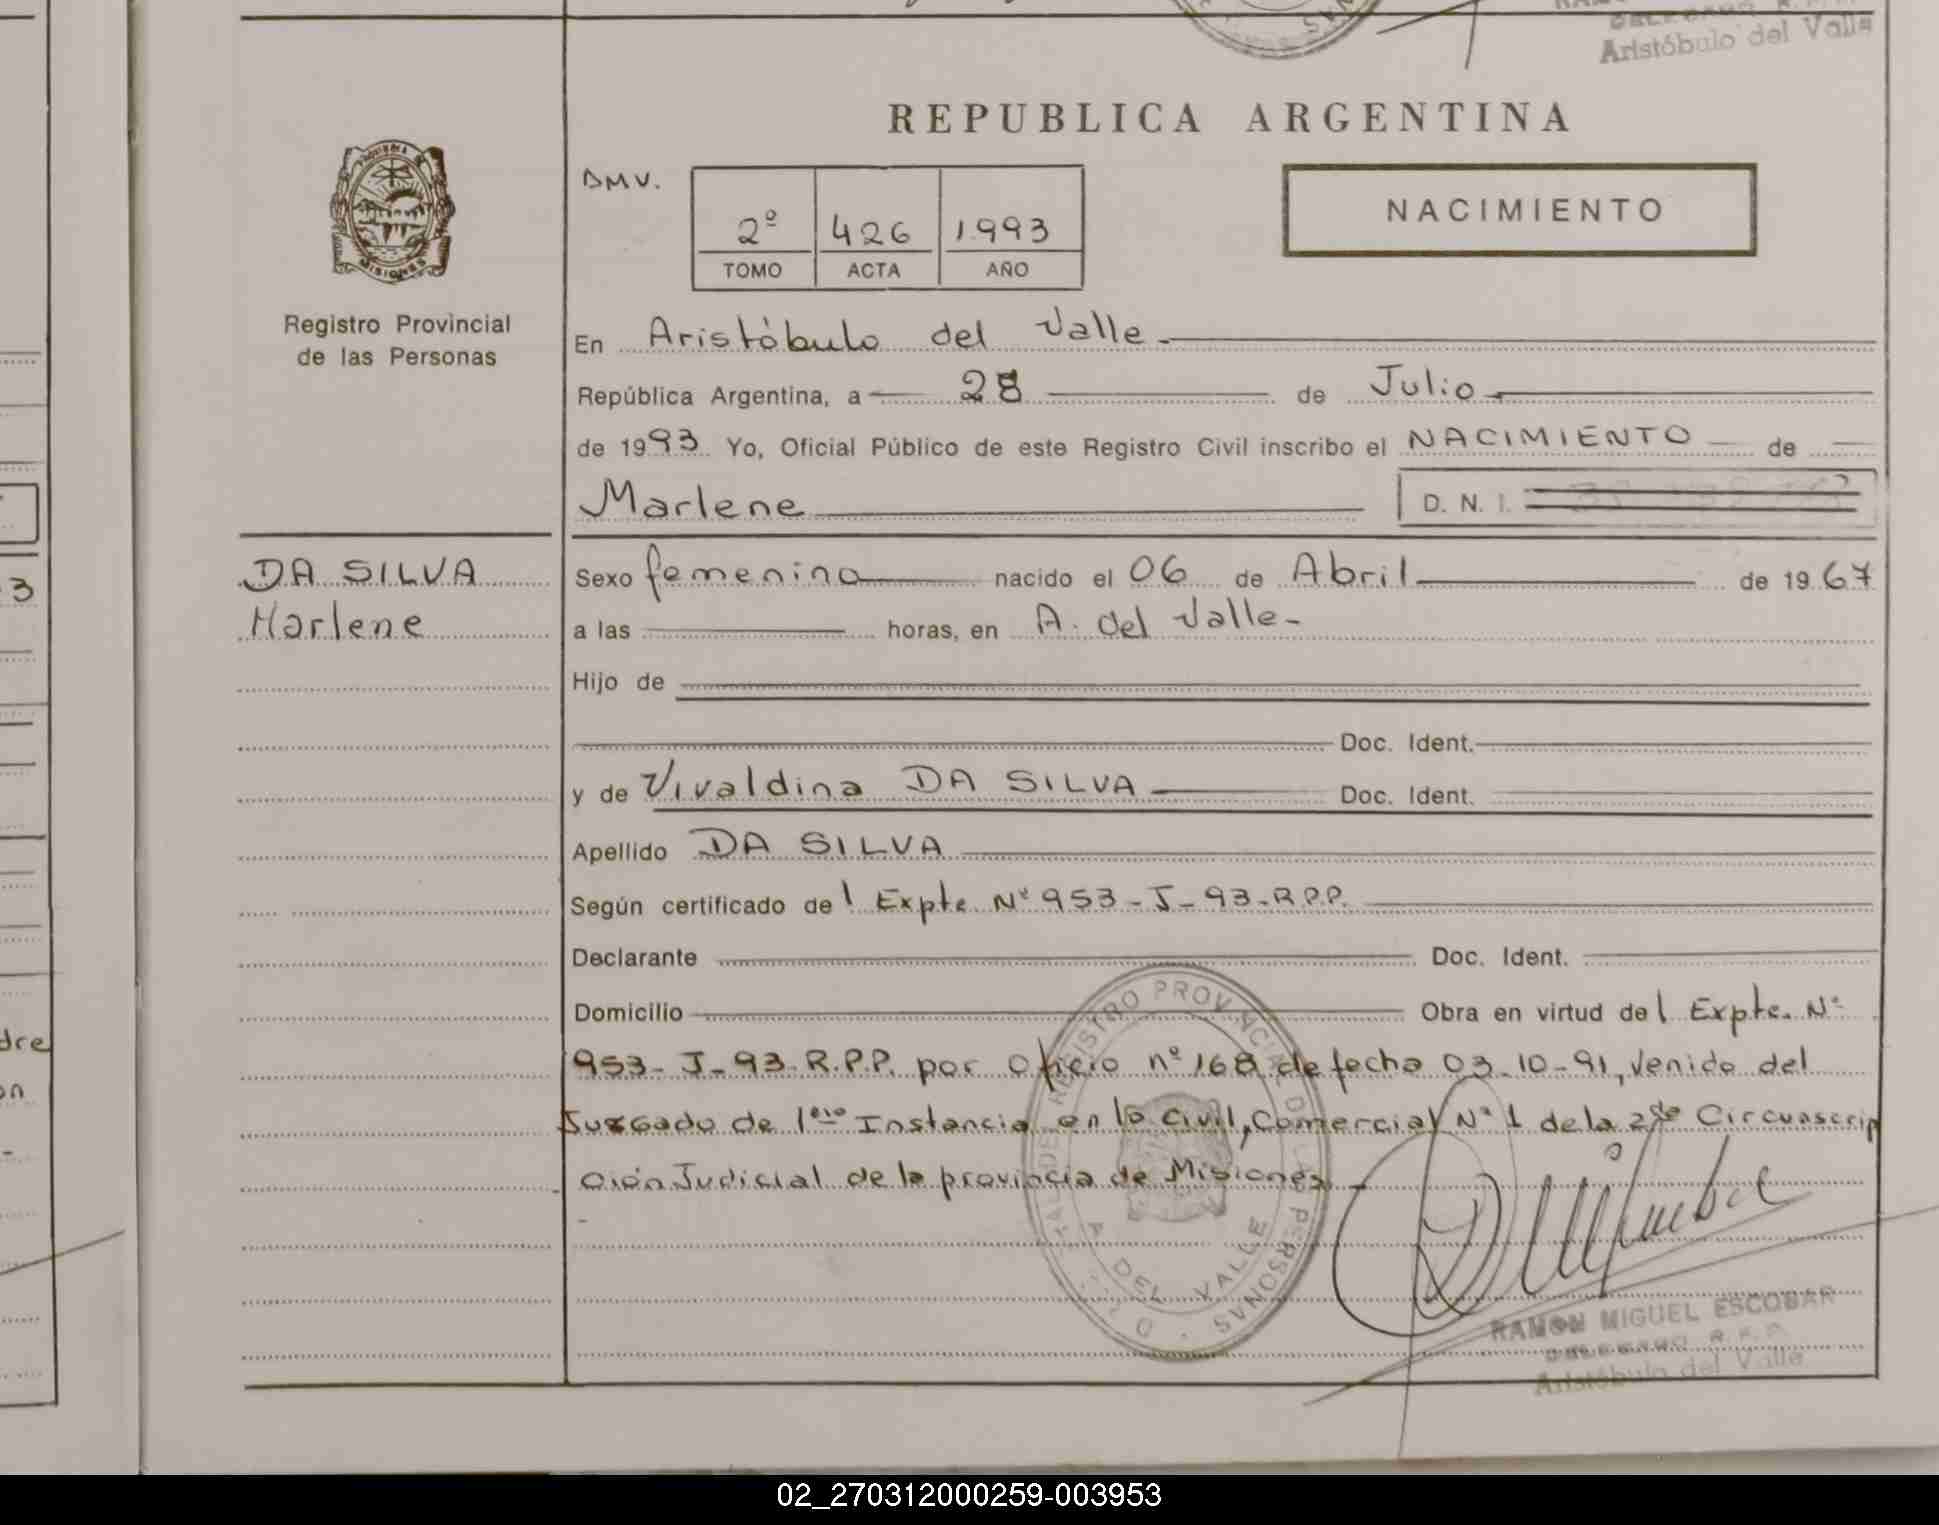 Aristóbulo del Valle
REPUBLICA ARGENTINA
PROVINCIA DE
MISIONES
Registro Provincial
de las Personas
DMV.
2º 426 1993
TOMO ACTA AÑO
NACIMIENTO
En Aristóbulo del Valle.
República Argentina, a 28 de Julio
de 1993 Yo, Oficial Público de este Registro Civil inscribo el NACIMIENTO de
Marlene D. N. I.
DA SILVA
Marlene
Sexo femenino nacido el 06 de Abril de 1967
a las horas, en A. del Valle-
Hijo de
Doc. Ident.
y de Vivaldina DA SILVA Doc. Ident.
Apellido DA SILVA
Según certificado del Expte. Nº 953-J-93-R.P.P.
Declarante Doc. Ident.
Domicilio Obra en virtud del Expte. Nº
953-J-93-R.P.P. por Oficio nº 168 de fecha 03-10-91, venido del
Juzgado de 1era Instancia en lo Civil, Comercial Nº 1 de la 2da Circunscrip
ción Judicial de la provincia de Misiones.-
REGISTRO PROVINCIAL DE LAS PERSONAS
A. DEL VALLE
RAMON MIGUEL ESCOBAR
DELEGADO R.P.P.
Aristóbulo del Valle
3
dre
on
02_270312000259-003953